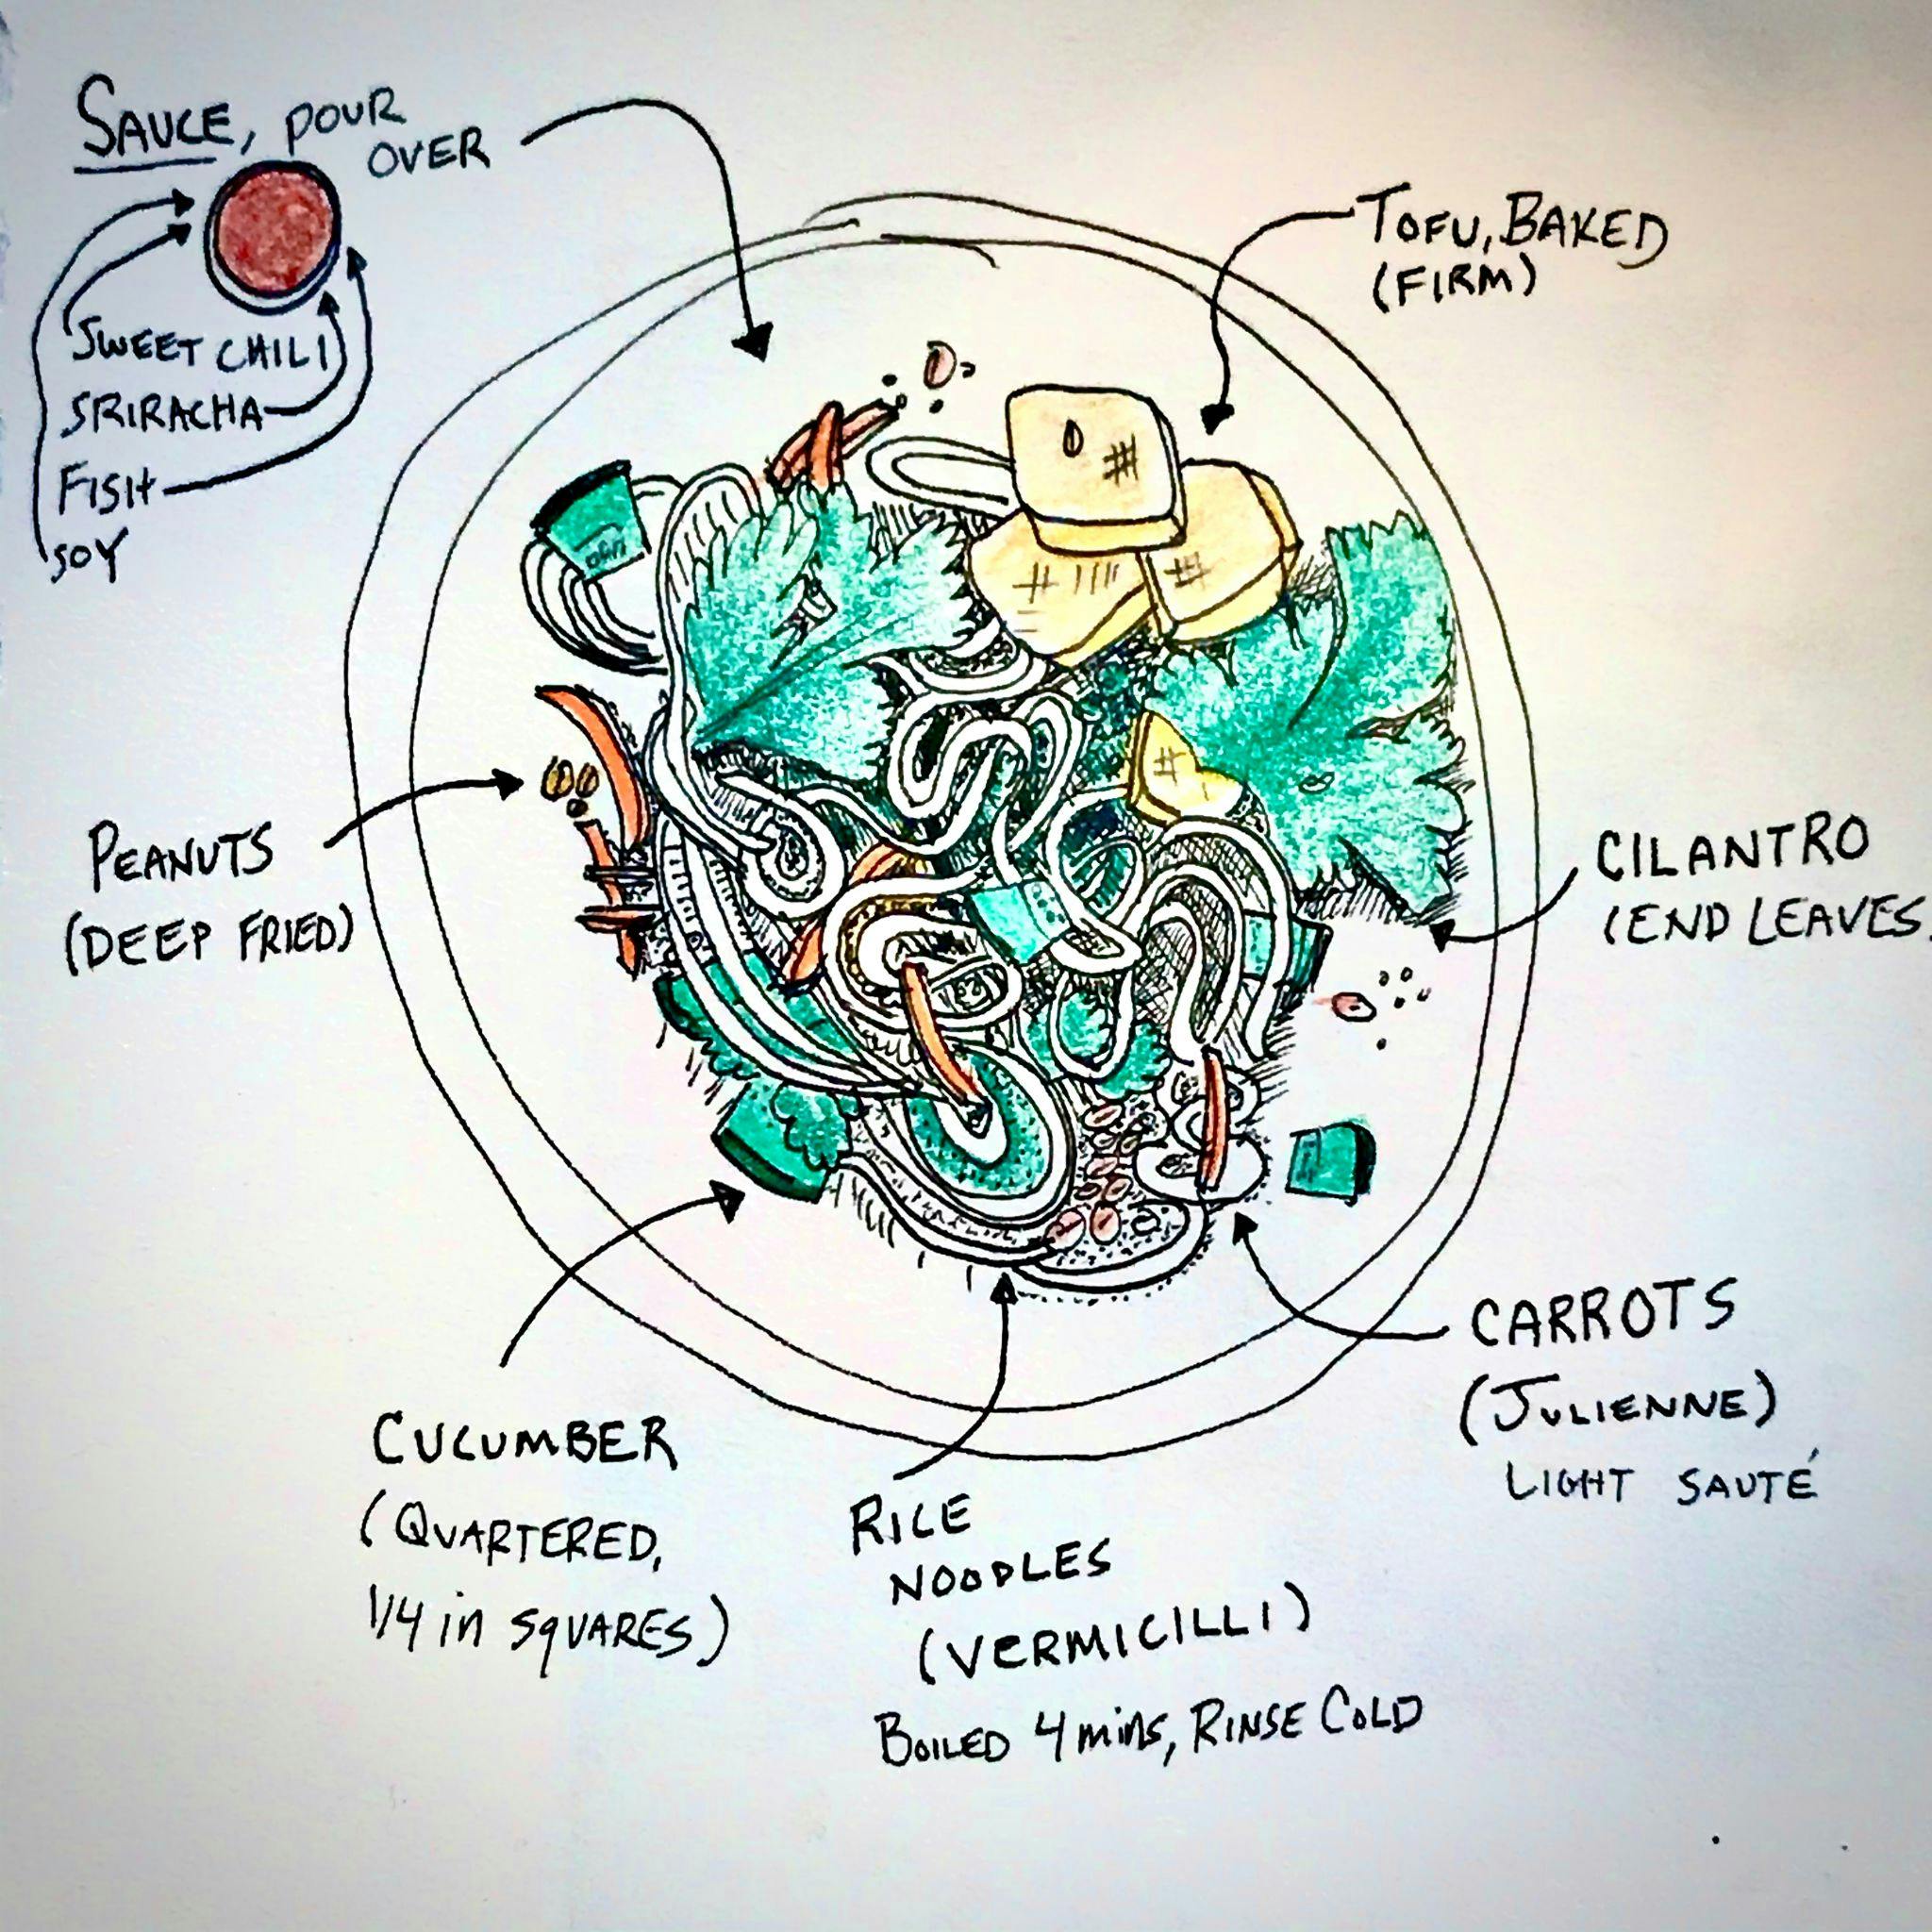 SAUCE, POUR
OVER
SWEET CHILI
SRIRACHA
FISH
SOY
TOFU, BAKED
(FIRM)
PEANUTS
(DEEP FRIED)
CILANTRO
(END LEAVES
CARROTS
(JULIENNE)
LIGHT SAUTÉ
CUCUMBER
(QUARTERED,
1/4 in SQUARES)
RICE
NOODLES
(VERMICILLI)
BOILED 4 mins, RINSE COLD